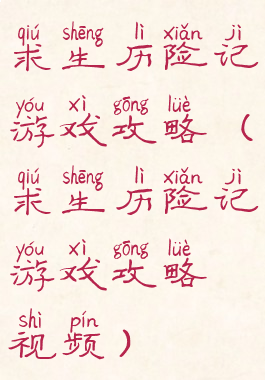 qiú shēng lì xiǎn jì
求生历险记
yóu xì gōng lüè
游戏攻略（
qiú shēng lì xiǎn jì
求生历险记
yóu xì gōng lüè
游戏攻略
shì pín
视频）